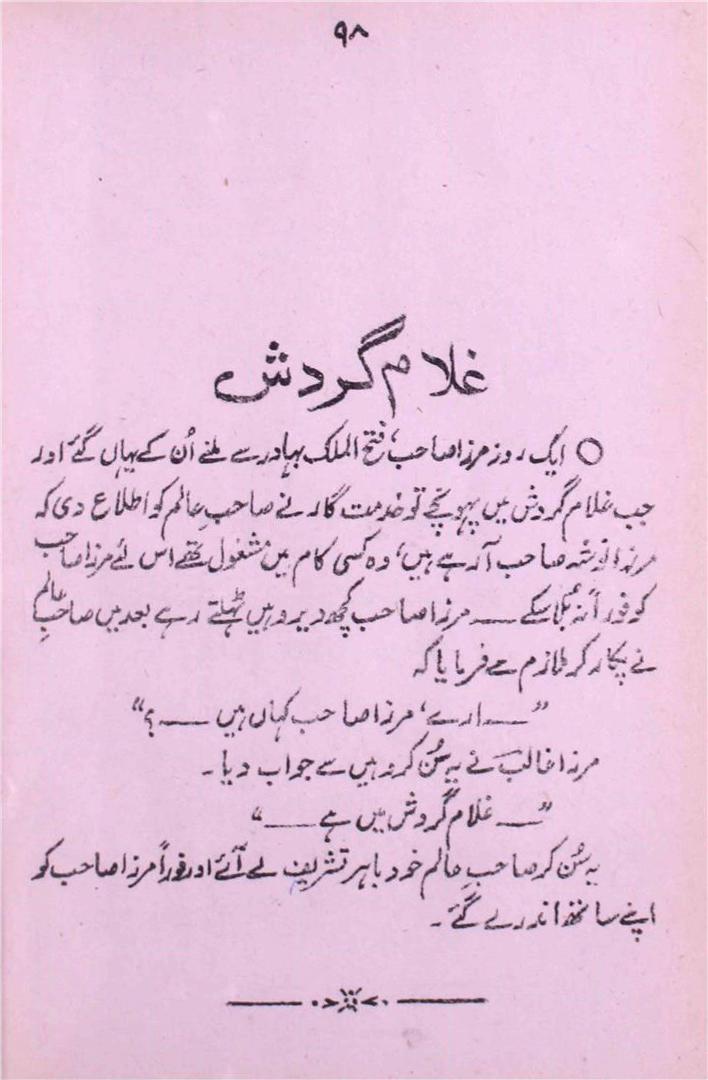 ۹۸
غلام گردش
○ ایک روز مرزا صاحب، فتح الملک بہادر سے ملنے اُن کے یہاں گئے اور
جب غلام گردش میں پہونچے تو خدمت گار نے صاحبِ عالم کو اطلاع دی کہ
مرزا نوشہ صاحب آ رہے ہیں، وہ کسی کام میں مشغول تھے اس لئے مرزا صاحب
کو فوراً نہ بُلا سکے ــــ مرزا صاحب کچھ دیر وہیں ٹہلتے رہے بعد میں صاحبِ عالم
نے پکار کر ملازم سے فرمایا کہ
”ــــ ارے، مرزا صاحب کہاں ہیں ــــ؟“
مرزا غالبؔ نے یہ سُن کر وہیں سے جواب دیا۔
”ــــ غلام گردش میں ہے ــــ“
یہ سُن کر صاحبِ عالم خود باہر تشریف لے آئے اور فوراً مرزا صاحب کو
اپنے ساتھ اندر لے گئے۔